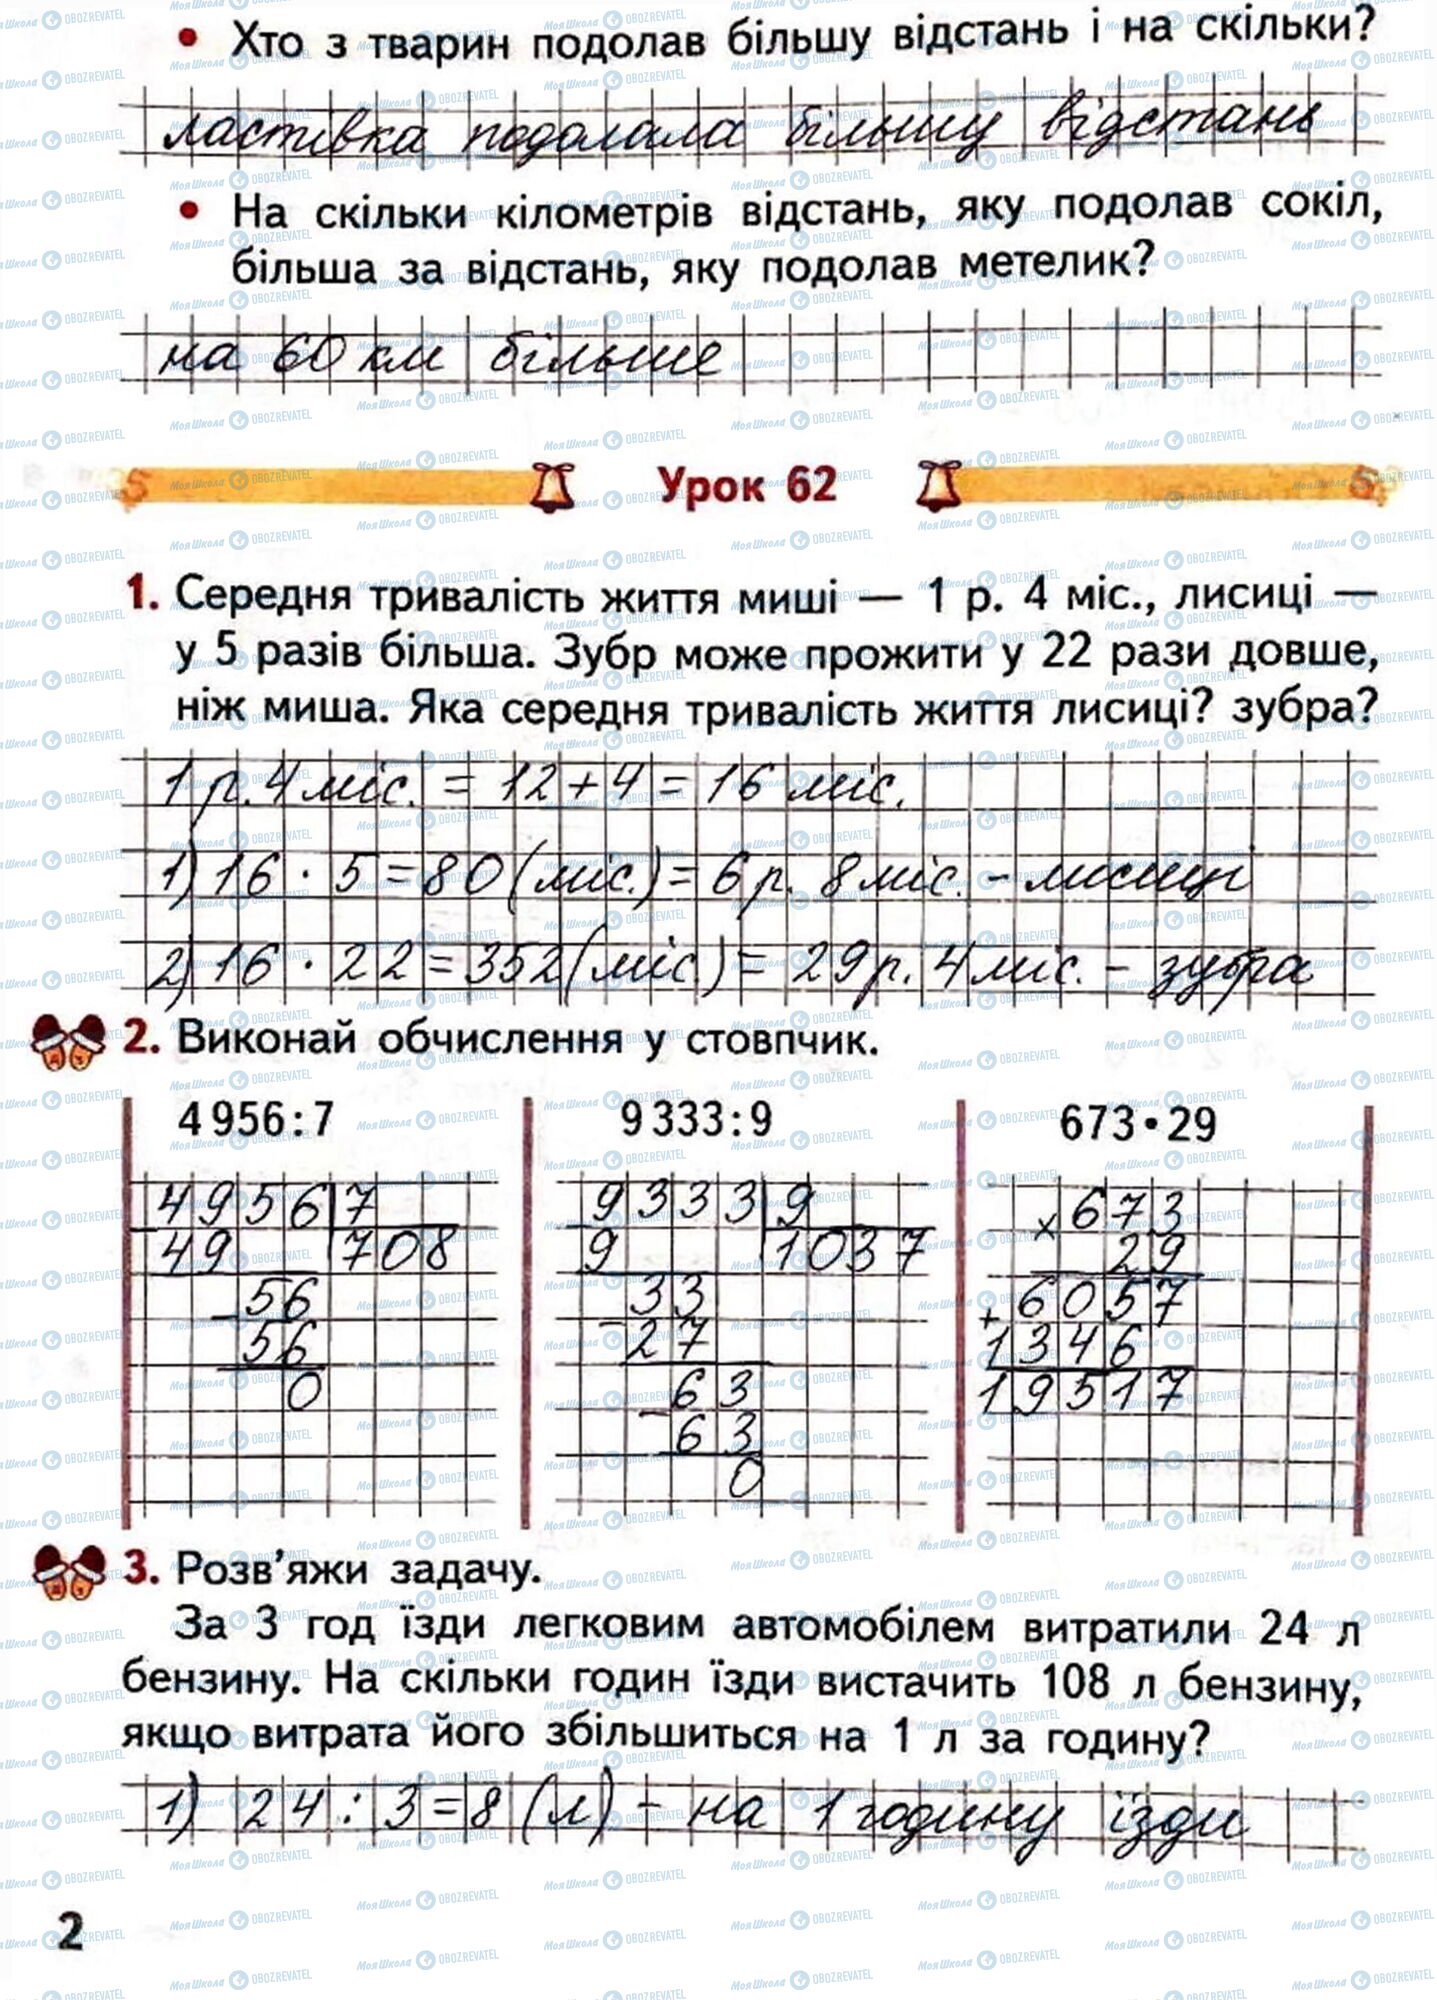 • Хто з тварин подолав більшу відстань і на скільки?
ластівка подолала більшу відстань
• На скільки кілометрів відстань, яку подолав сокіл,
більша за відстань, яку подолав метелик?
на 60 км більше
Урок 62
1. Середня тривалість життя миші — 1 р. 4 міс., лисиці —
у 5 разів більша. Зубр може прожити у 22 рази довше,
ніж миша. Яка середня тривалість життя лисиці? зубра?
1 р. 4 міс. = 12 + 4 = 16 міс.
1) 16 · 5 = 80 (міс.) = 6 р. 8 міс. - лисиці
2) 16 · 22 = 352 (міс.) = 29 р. 4 міс. - зубра
2. Виконай обчислення у стовпчик.
4 956 : 7 9 333 : 9 673 • 29
4956 7
49 708
- 56
56
0
9333 9
9 1037
33
- 27
63
- 63
0
× 673
29
+ 6057
1346
19517
3. Розв'яжи задачу.
За 3 год їзди легковим автомобілем витратили 24 л
бензину. На скільки годин їзди вистачить 108 л бензину,
якщо витрата його збільшиться на 1 л за годину?
1) 24 : 3 = 8 (л) - на 1 годину їзди
2
МояШкола OBOZREVATEL